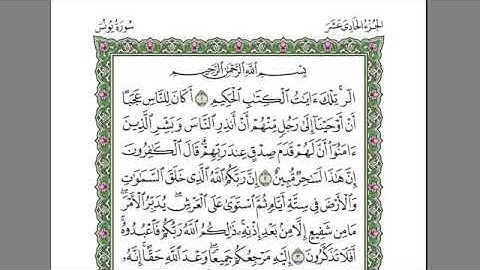 الجزء الحادي عشر
سورة يونس
بِسْمِ اللَّهِ الرَّحْمَٰنِ الرَّحِيمِ
الٓر ۚ تِلْكَ ءَايَٰتُ الْكِتَٰبِ الْحَكِيمِ ١ أَكَانَ لِلنَّاسِ عَجَبًا
أَنْ أَوْحَيْنَآ إِلَىٰ رَجُلٍ مِّنْهُمْ أَنْ أَنذِرِ النَّاسَ وَبَشِّرِ الَّذِينَ
ءَامَنُوٓا۟ أَنَّ لَهُمْ قَدَمَ صِدْقٍ عِندَ رَبِّهِمْ ۗ قَالَ الْكَٰفِرُونَ
إِنَّ هَٰذَا لَسَٰحِرٌ مُّبِينٌ ٢ إِنَّ رَبَّكُمُ اللَّهُ الَّذِي خَلَقَ السَّمَٰوَٰتِ
وَالْأَرْضَ فِي سِتَّةِ أَيَّامٍ ثُمَّ اسْتَوَىٰ عَلَى الْعَرْشِ ۖ يُدَبِّرُ الْأَمْرَ ۖ
مَا مِن شَفِيعٍ إِلَّا مِنۢ بَعْدِ إِذْنِهِۦ ۚ ذَٰلِكُمُ اللَّهُ رَبُّكُمْ فَاعْبُدُوهُ ۚ
أَفَلَا تَذَكَّرُونَ ٣ إِلَيْهِ مَرْجِعُكُمْ جَمِيعًا ۖ وَعْدَ اللَّهِ حَقًّا ۚ إِنَّهُۥ